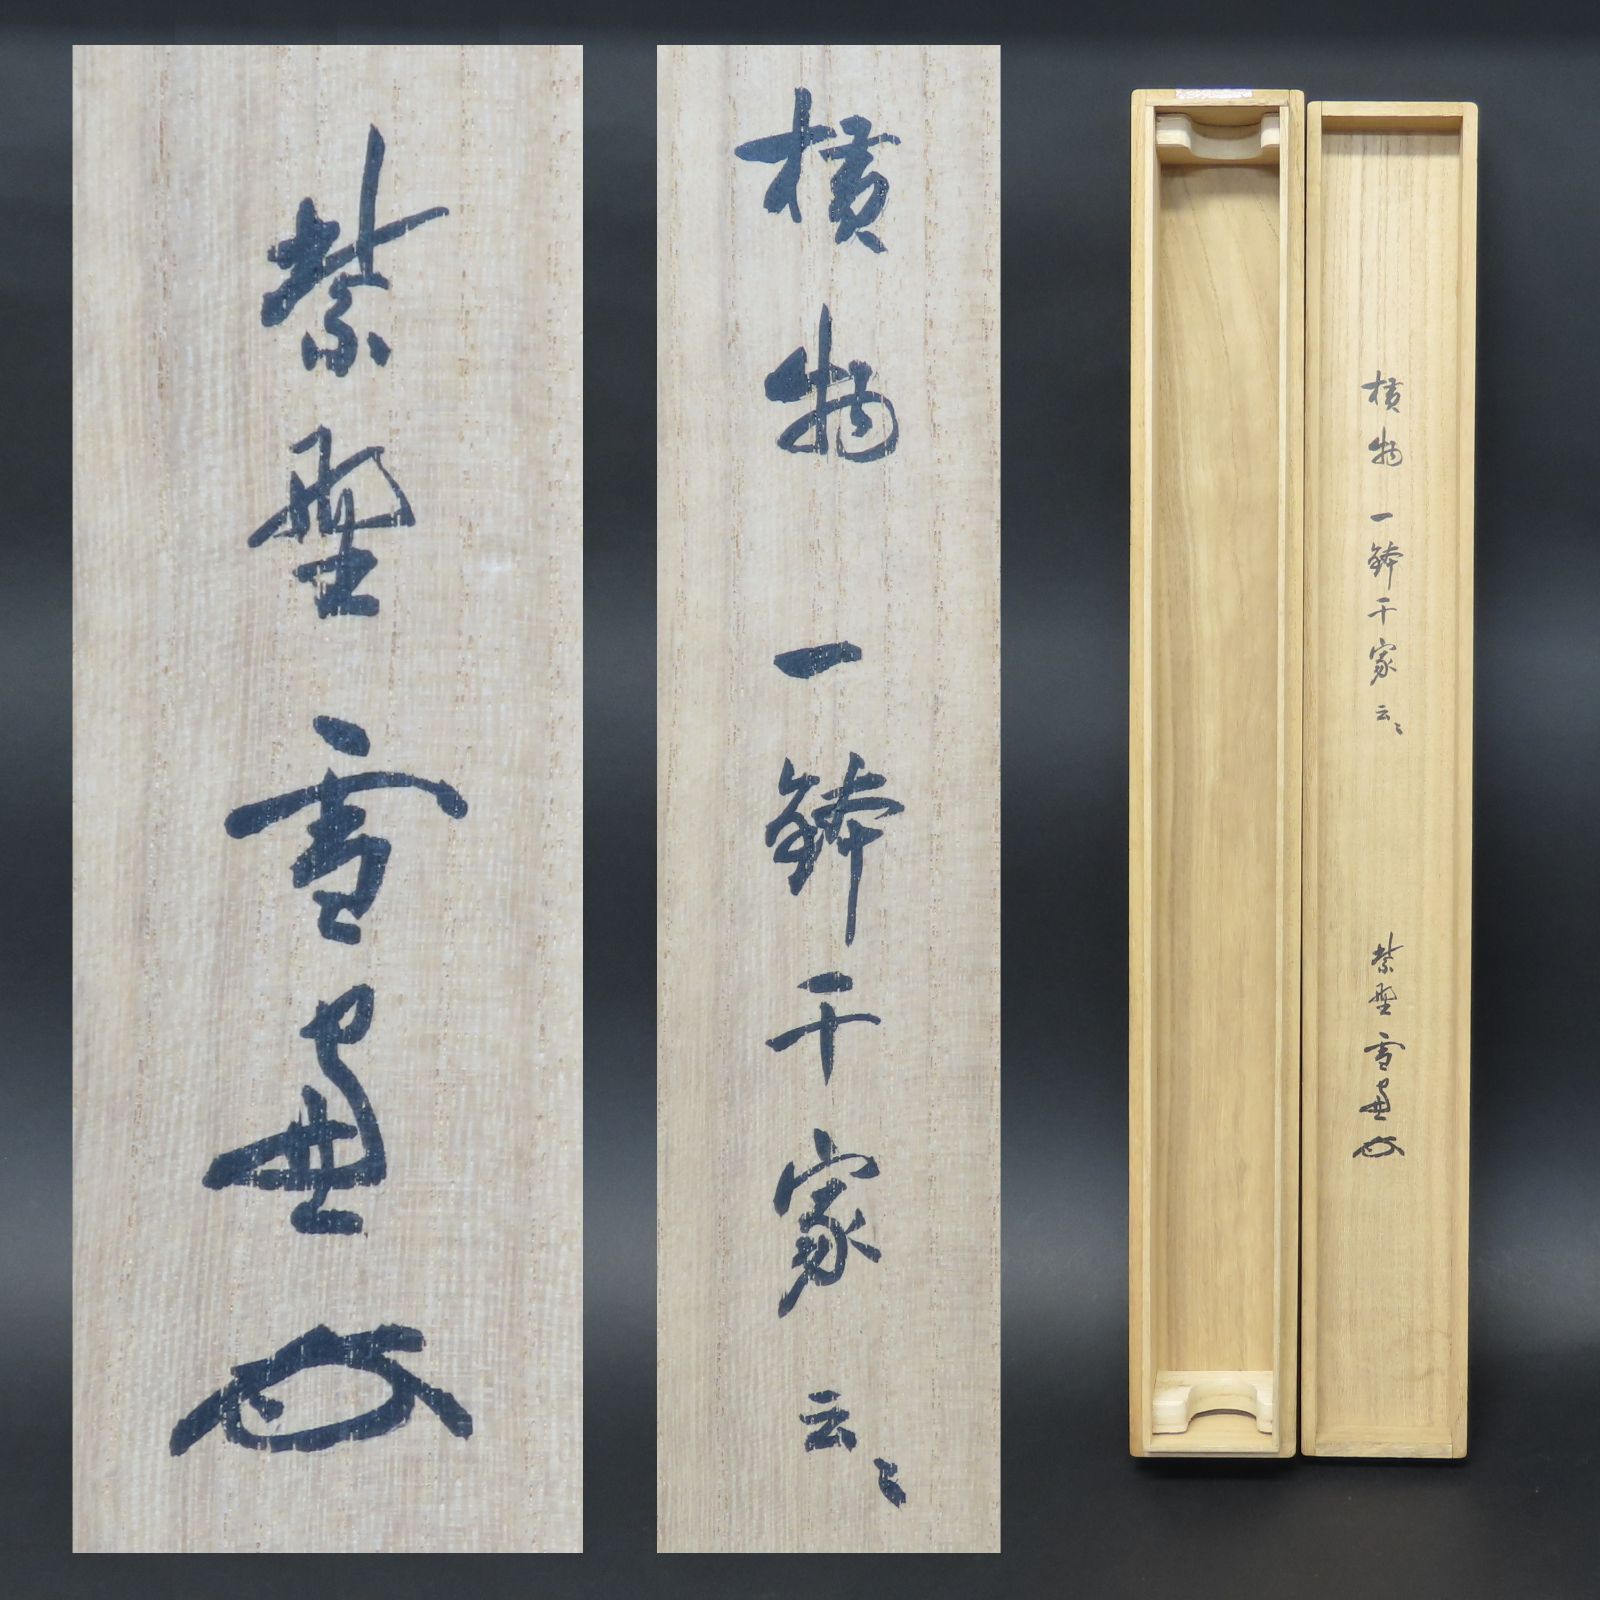 横物 一鉢千家云々
紫野 雪
横物 一鉢千家云々
紫野 雪